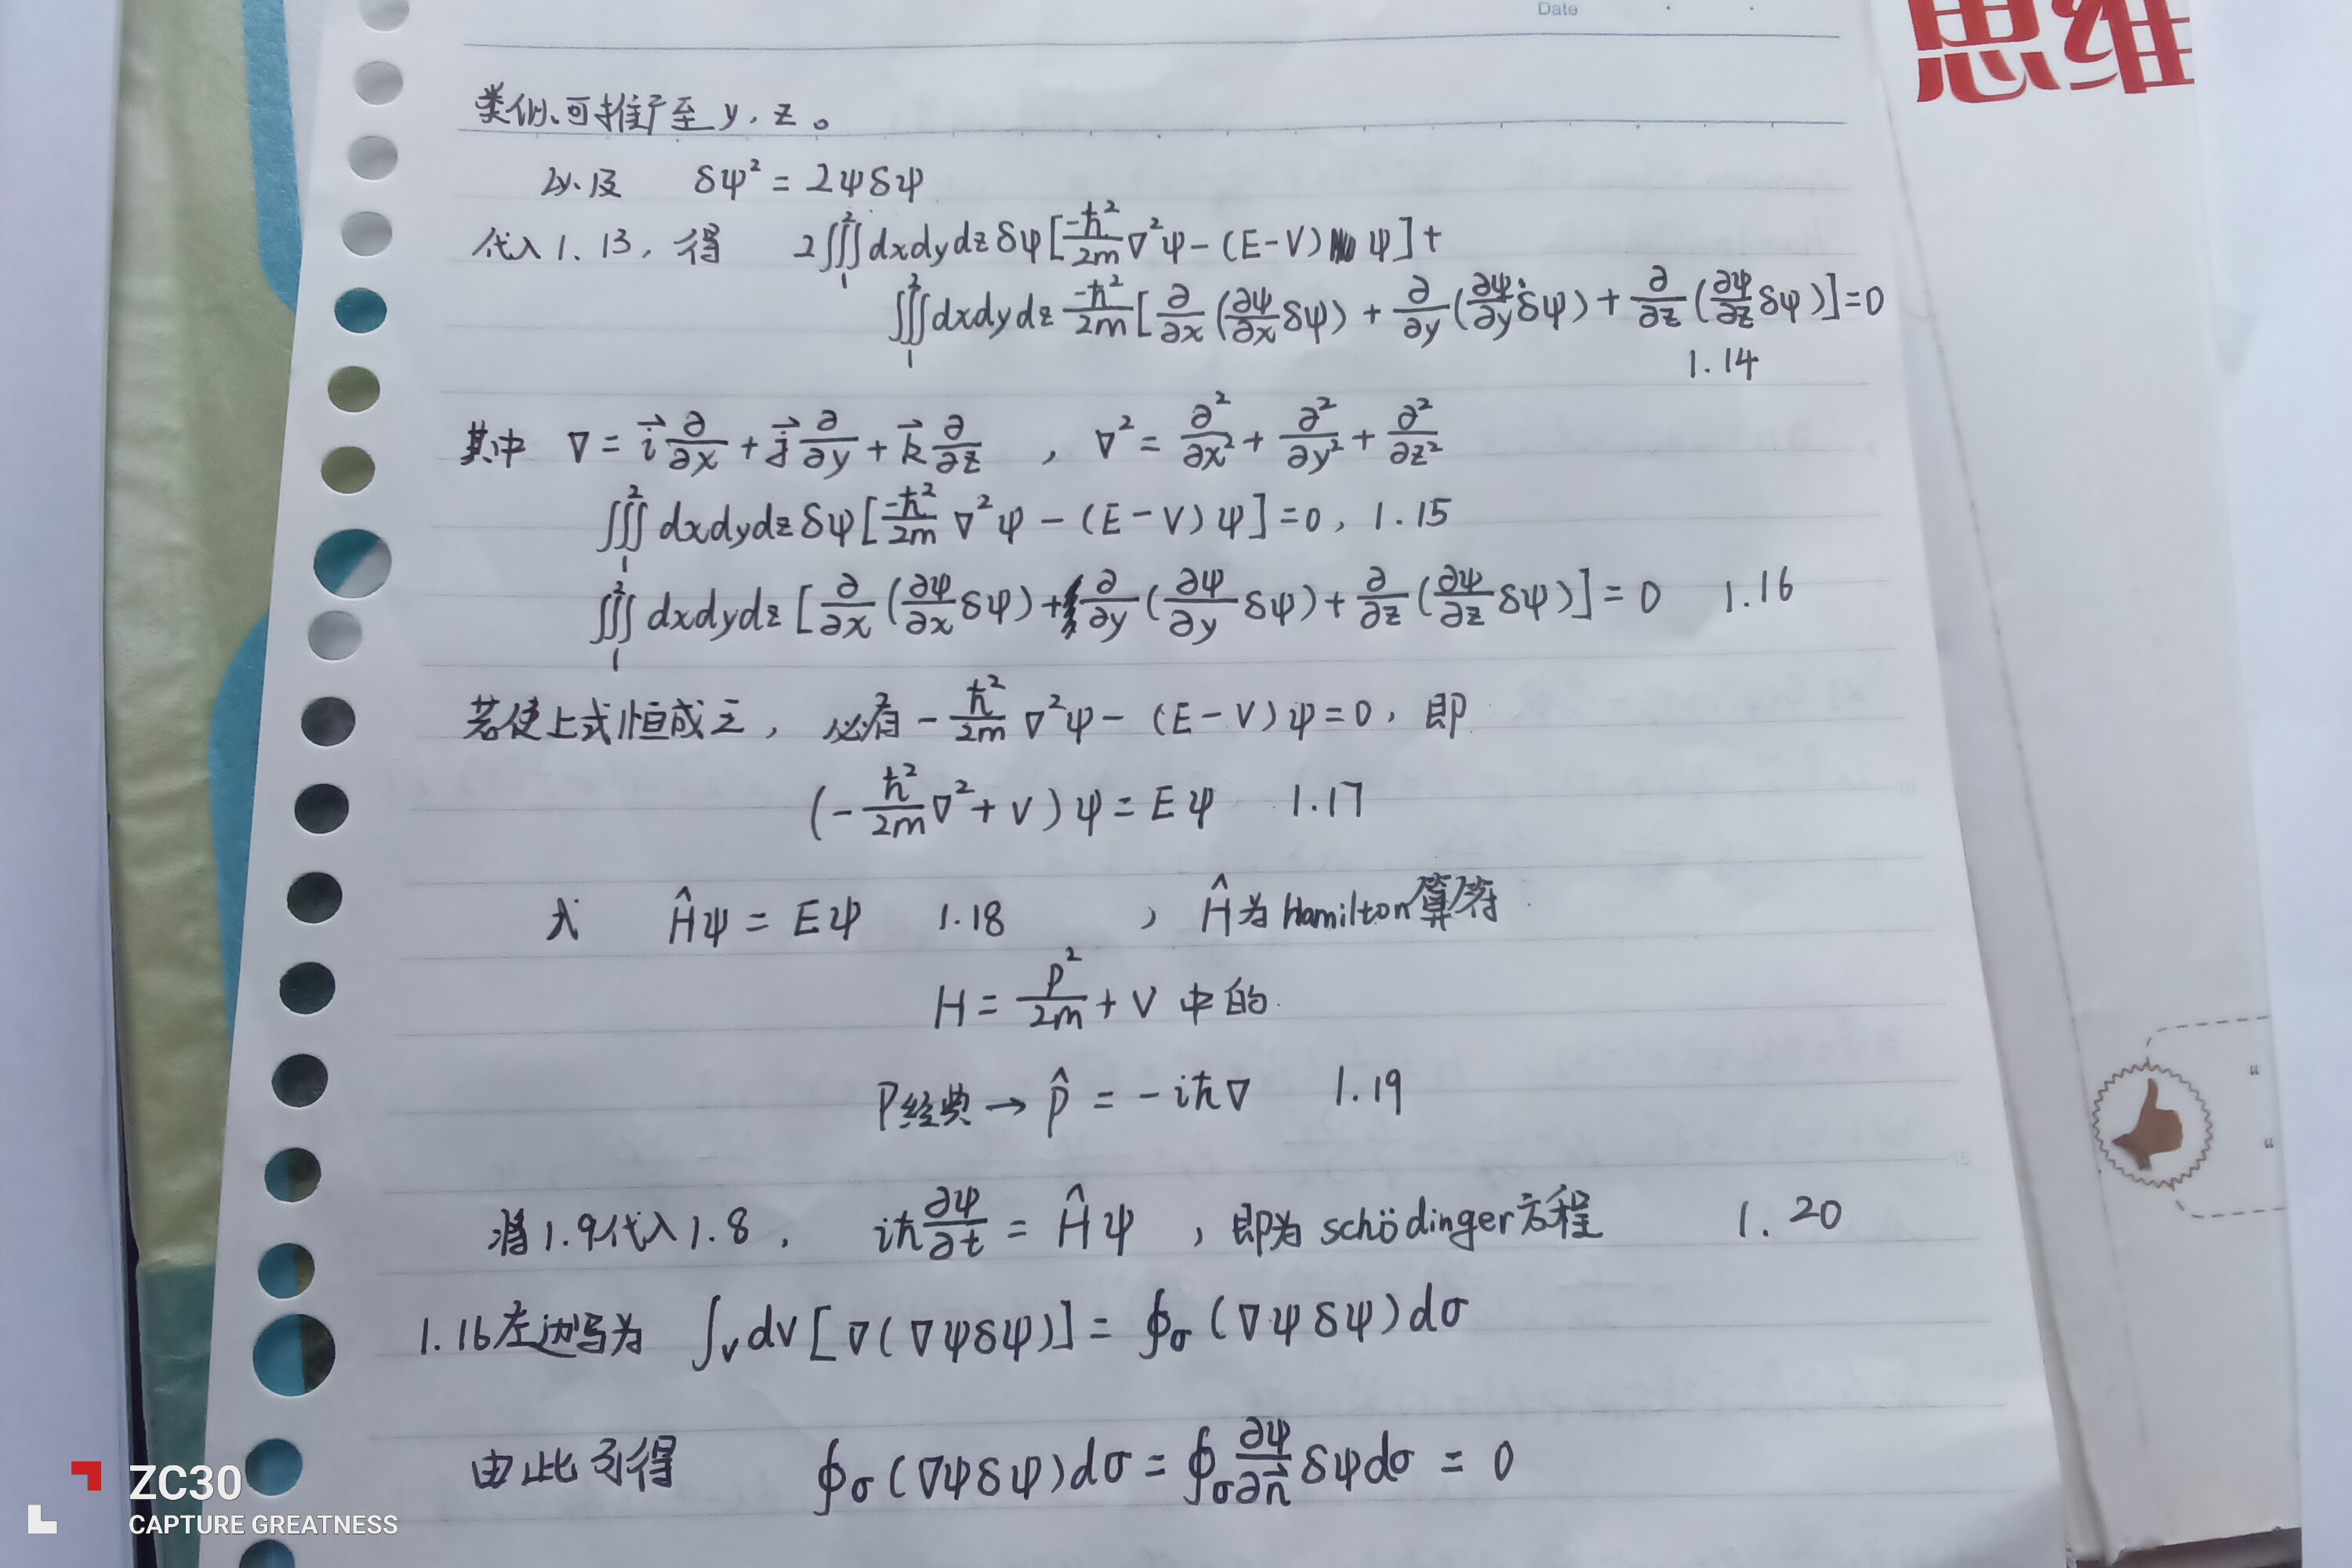 Date
思维
类似可推广至 y, z。
以及 δψ² = 2ψδψ
代入1.13, 得 2∭₁² dxdydz δψ[-ħ²/2m ∇²ψ - (E-V) ψ] +
∭₁² dxdydz -ħ²/2m [∂/∂x (∂ψ/∂x δψ) + ∂/∂y (∂ψ/∂y δψ) + ∂/∂z (∂ψ/∂z δψ)] = 0
1.14
其中 ∇ = i⃗ ∂/∂x + j⃗ ∂/∂y + k⃗ ∂/∂z , ∇² = ∂²/∂x² + ∂²/∂y² + ∂²/∂z²
∭₁² dxdydz δψ[-ħ²/2m ∇²ψ - (E-V)ψ] = 0, 1.15
∭₁² dxdydz [∂/∂x (∂ψ/∂x δψ) + ∂/∂y (∂ψ/∂y δψ) + ∂/∂z (∂ψ/∂z δψ)] = 0 1.16
若使上式恒成立, 必有 - ħ²/2m ∇²ψ - (E-V)ψ = 0, 即
(- ħ²/2m ∇² + V)ψ = Eψ 1.17
式 Ĥψ = Eψ 1.18 , Ĥ为Hamilton算符
H = p²/2m + V 中的
P经典 → p̂ = -iħ∇ 1.19
将1.9代入1.8, iħ ∂ψ/∂t = Ĥψ , 即为 schödinger方程 1.20
1.16左边写为 ∫ᵥ dV [∇(∇ψδψ)] = ∮σ (∇ψδψ)dσ
由此可得 ∮σ (∇ψδψ)dσ = ∮σ ∂ψ/∂n⃗ δψdσ = 0
ZC30
CAPTURE GREATNESS